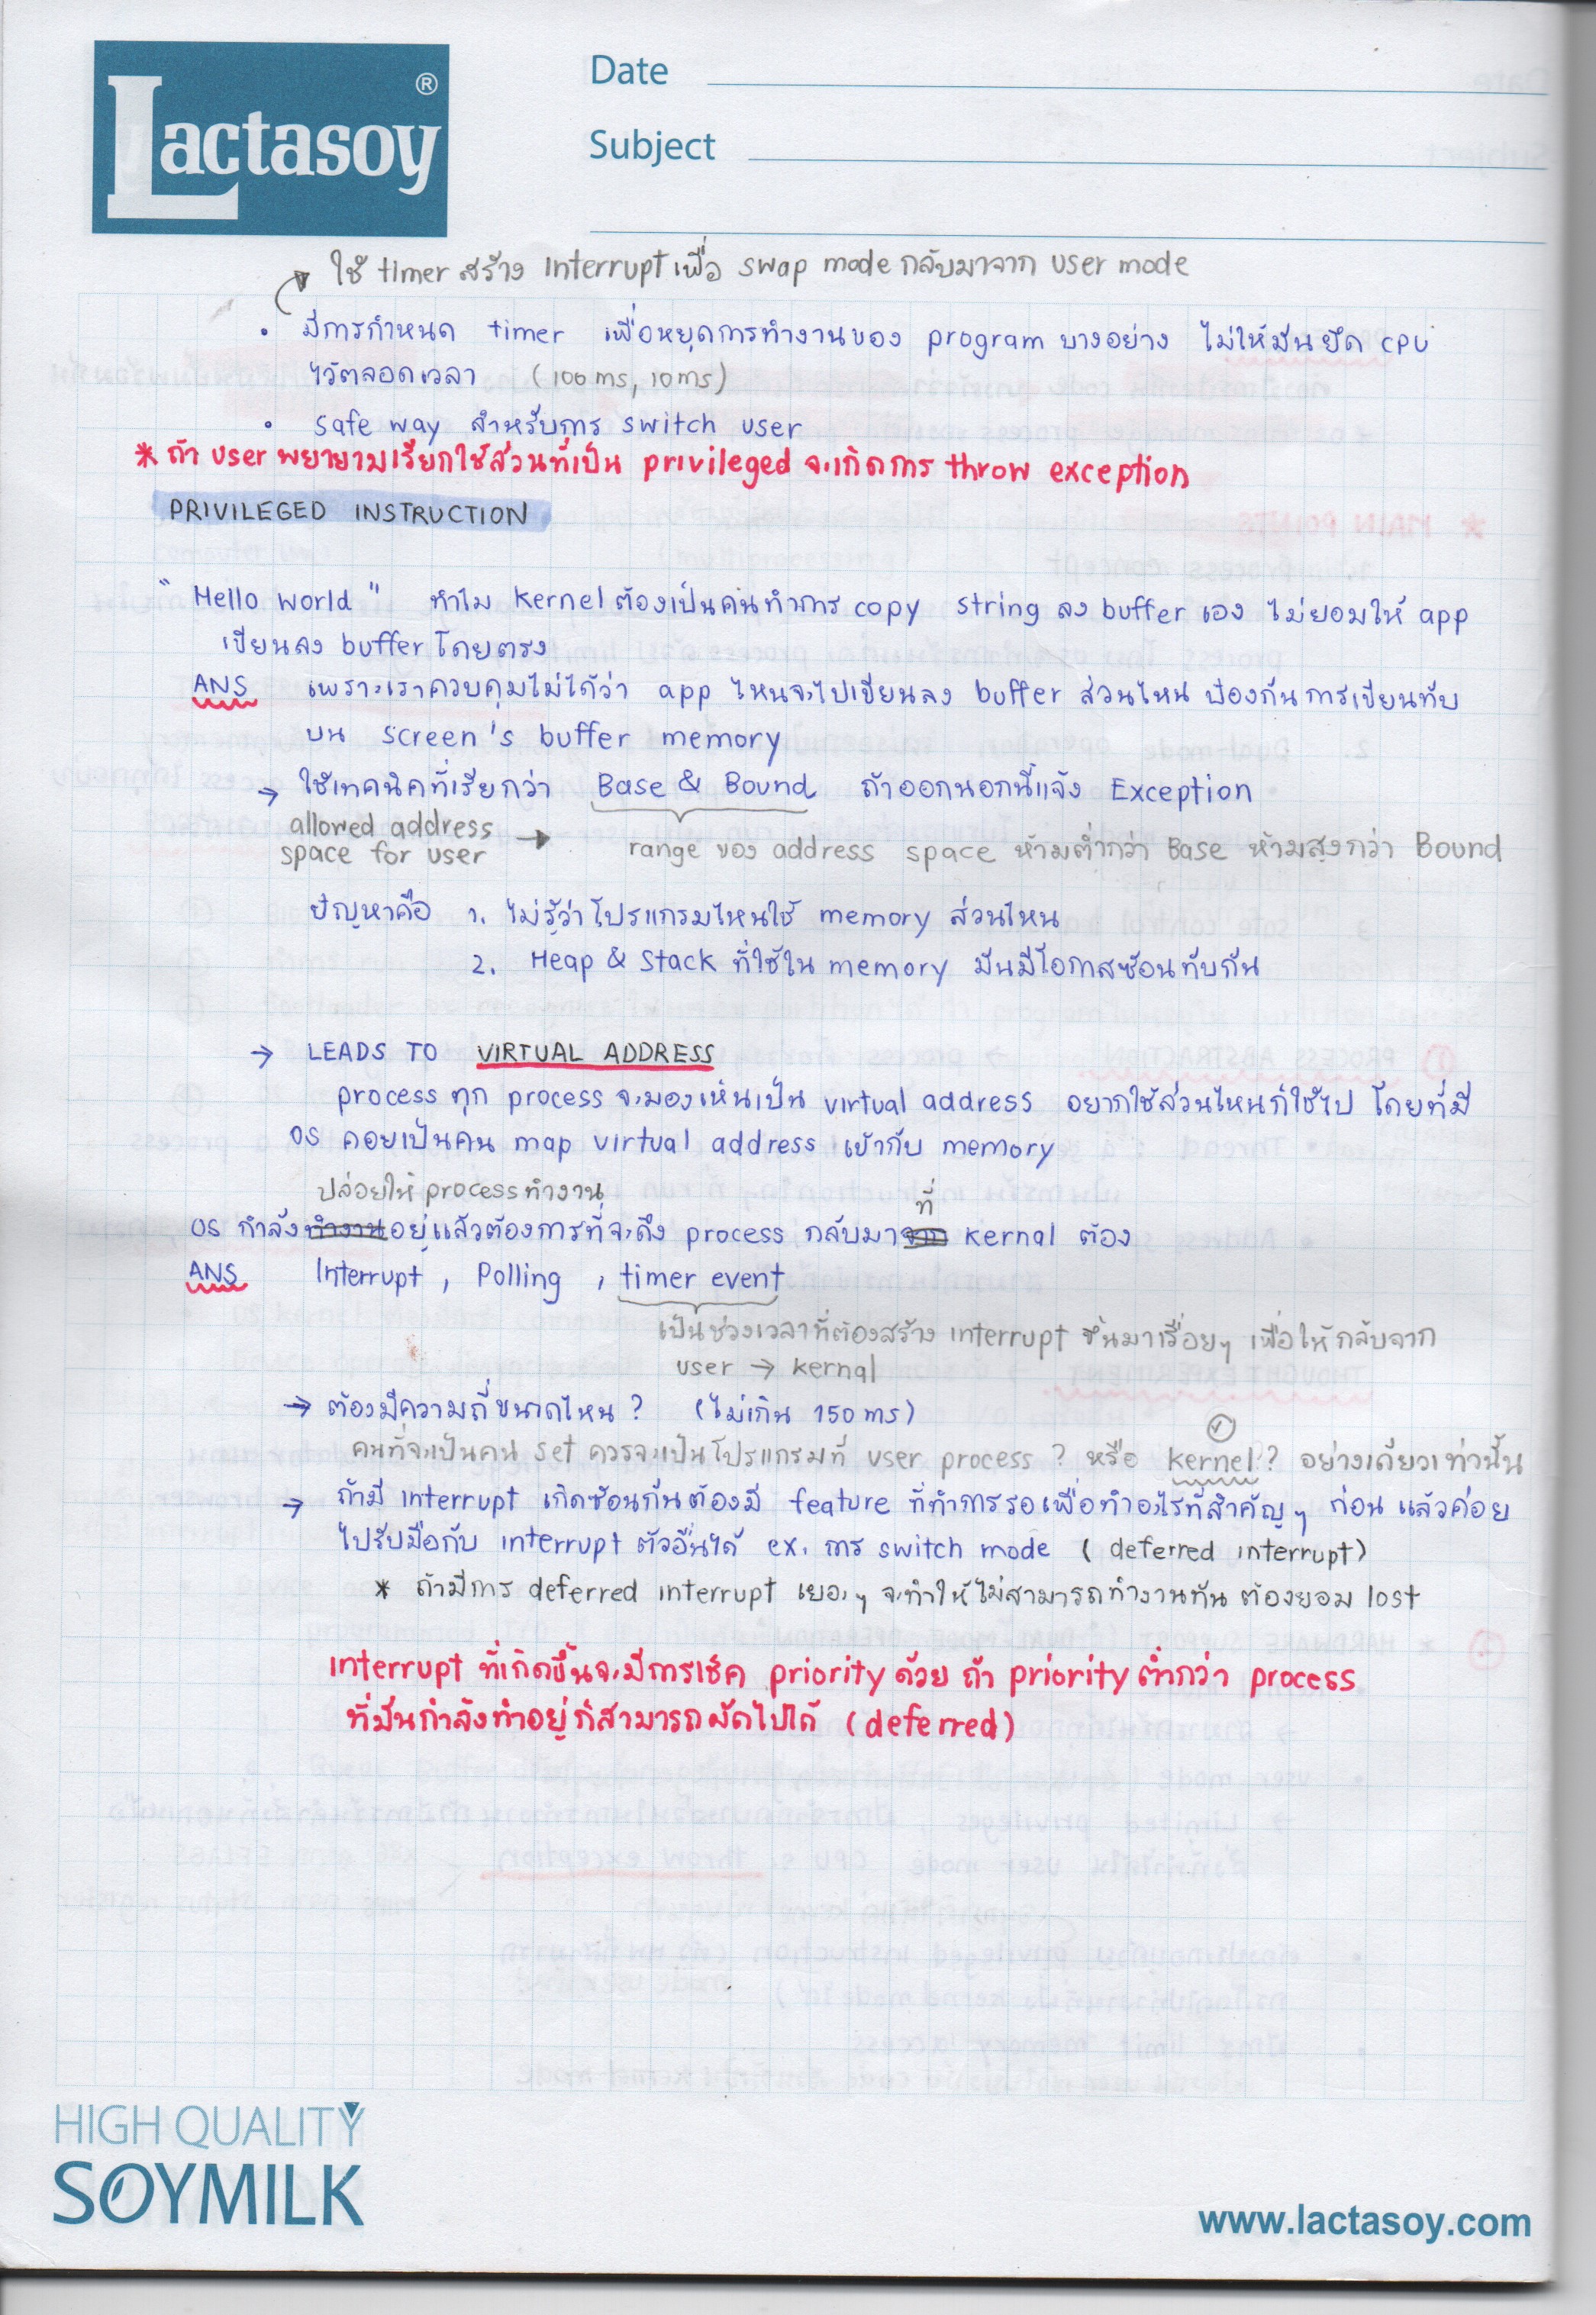 Lactasoy ®
Date
Subject
ใช้ timer สร้าง interrupt เพื่อ swap mode กลับมาจาก user mode
• มีการกำหนด timer เพื่อหยุดการทำงานของ program บางอย่าง ไม่ให้มันยึด CPU
ไว้ตลอดเวลา (100 ms, 10 ms)
• safe way สำหรับการ switch user
* ถ้า user พยายามเรียกใช้ส่วนที่เป็น privileged จะเกิดการ throw exception
PRIVILEGED INSTRUCTION
"Hello World" ทำไม kernel ต้องเป็นคนทำการ copy string ลง buffer เอง ไม่ยอมให้ app
เขียนลง buffer โดยตรง
ANS เพราะเราควบคุมไม่ได้ว่า app ไหนจะไปเขียนลง buffer ส่วนไหน ป้องกันการเขียนทับ
บน screen's buffer memory
→ ใช้เทคนิคที่เรียกว่า Base & Bound ถ้าออกนอกนี้แจ้ง Exception
allowed address
space for user → range ของ address space ห้ามต่ำกว่า Base ห้ามสูงกว่า Bound
ปัญหาคือ 1. ไม่รู้ว่าโปรแกรมไหนใช้ memory ส่วนไหน
2. Heap & Stack ที่ใช้ใน memory มันมีโอกาสซ้อนทับกัน
→ LEADS TO VIRTUAL ADDRESS
process ทุก process จะมองเห็นเป็น virtual address อยากใช้ส่วนไหนก็ใช้ไป โดยที่มี
OS คอยเป็นคน map virtual address เข้ากับ memory
ปล่อยให้ process ทำงาน
ที่
OS กำลังทำงานอยู่แล้วต้องการที่จะดึง process กลับมาจาก kernal ต้อง
ANS Interrupt, Polling, timer event
เป็นช่วงเวลาที่ต้องสร้าง interrupt ขึ้นมาเรื่อยๆ เพื่อให้กลับจาก
user → kernal
→ ต้องมีความถี่ขนาดไหน? (ไม่เกิน 150 ms)
คนที่จะเป็นคน set ควรจะเป็นโปรแกรมที่ user process ? หรือ kernel ? อย่างเดียวเท่านั้น
→ ถ้ามี interrupt เกิดซ้อนกันต้องมี feature ที่ทำการรอเพื่อทำอะไรที่สำคัญๆ ก่อน แล้วค่อย
ไปรับมือกับ interrupt ตัวอื่นได้ ex. การ switch mode (deferred interrupt)
* ถ้ามีการ deferred interrupt เยอะๆ จะทำให้ไม่สามารถทำงานทัน ต้องยอม lost
interrupt ที่เกิดขึ้นจะมีการเช็ค priority ด้วย ถ้า priority ต่ำกว่า process
ที่มันกำลังทำอยู่ก็สามารถผัดไปได้ (deferred)
HIGH QUALITY
SOYMILK
www.lactasoy.com